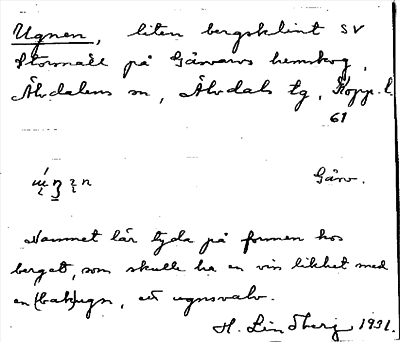 Ugnen, liten bergsklint SV
Stormåck på Gåsvarvs hemskog,
Älvdalens sn, Älvdals tg, Kopp. l.
61
Nammet lär tyda på formen hos
berget, som skulle ha en viss likhet med
en (bak)ugn, ett ugnsvalv.
H. Lindberg 1931.